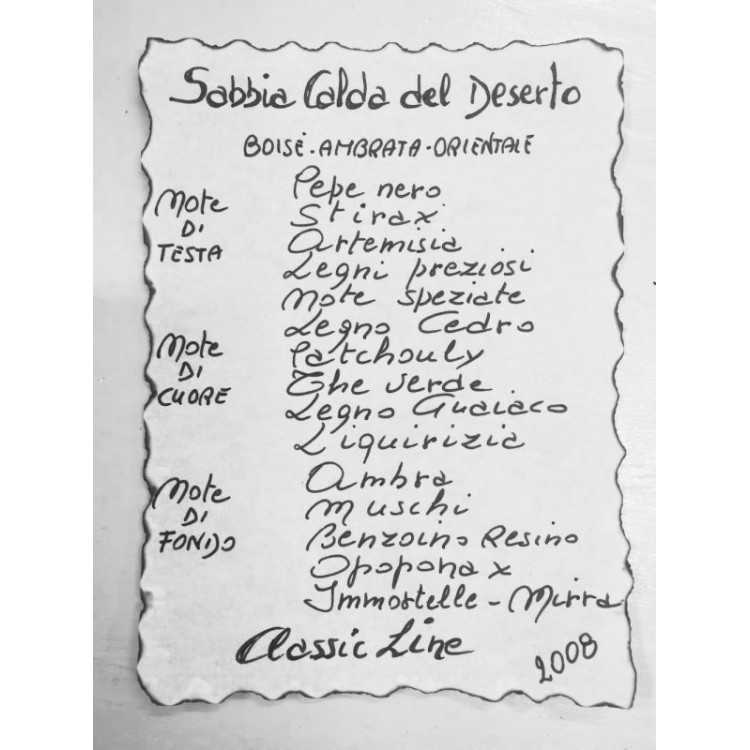 Sabbia Calda del Deserto
BOISÉ-AMBRATA-ORIENTALE
Note
DI
TESTA
Pepe nero
Stirax
Artemisia
Legni preziosi
Note speziate
Legno Cedro
Note
DI
CUORE
Patchouly
The verde
Legno Guaiaco
Liquirizia
Note
DI
FONDO
Ambra
Muschi
Benzoino Resino
Opoponax
Immortelle - Mirra
Classic Line
2008